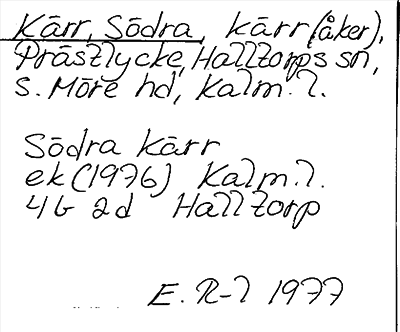 Kärr, Södra, kärr (åker),
Prästlycke, Halltorps sn,
S. Möre hd, Kalm. l.
Södra Kärr
ek (1976) Kalm. l.
4G 2d Halltorp
E. R-l 1977